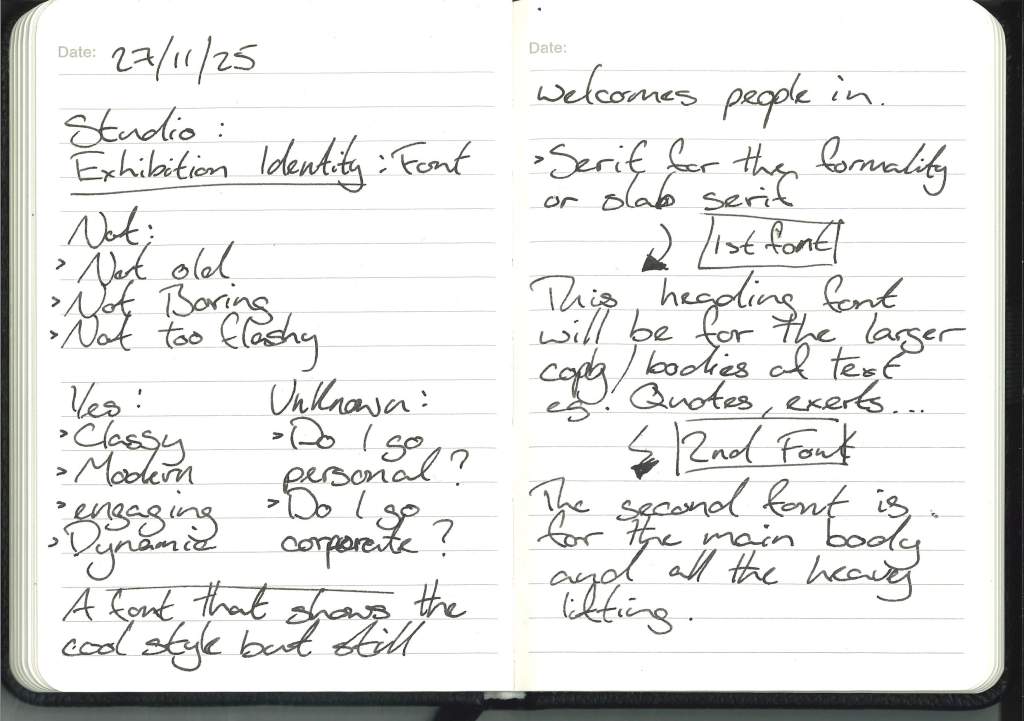 Date: 27/11/25
Studio :
Exhibition Identity : Font
Not :
> Not old
> Not Boring
> Not too flashy
Yes :
> Classy
> Modern
> engaging
> Dynamic
Unknown :
> Do I go
personal ?
> Do I go
corporate ?
A font that shows the
cool style but still
Date:
welcomes people in.
> Serif for the formality
or slab serif
1st font
This heading font
will be for the larger
copy / bodies of text
eg. Quotes, exerts...
2nd Font
The second font is
for the main body
and all the heavy
lifting.